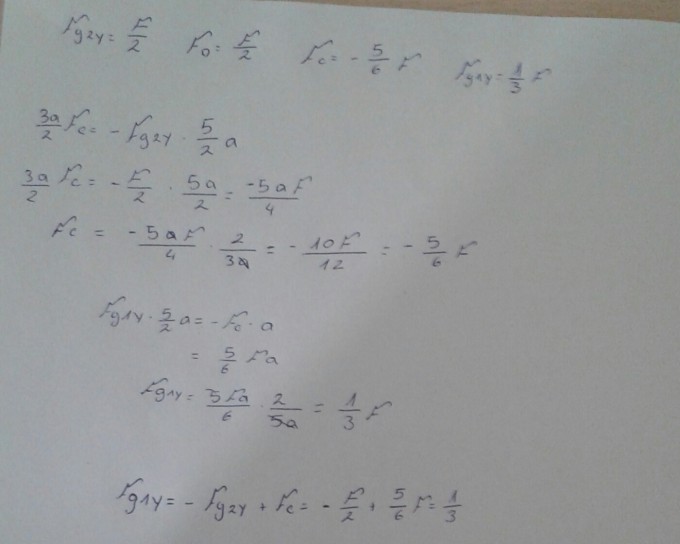 Fg2y = F/2 F0 = F/2 Fc = - 5/6 F Fg1y = 1/3 F
3a/2 Fc = - Fg2y · 5/2 a
3a/2 Fc = - F/2 · 5a/2 = -5aF/4
Fc = -5aF/4 · 2/3a = - 10F/12 = - 5/6 F
Fg1y · 5/2 a = - Fc · a
= 5/6 Fa
Fg1y = 5Fa/6 · 2/5a = 1/3 F
Fg1y = - Fg2y + Fc = - F/2 + 5/6 F = 1/3